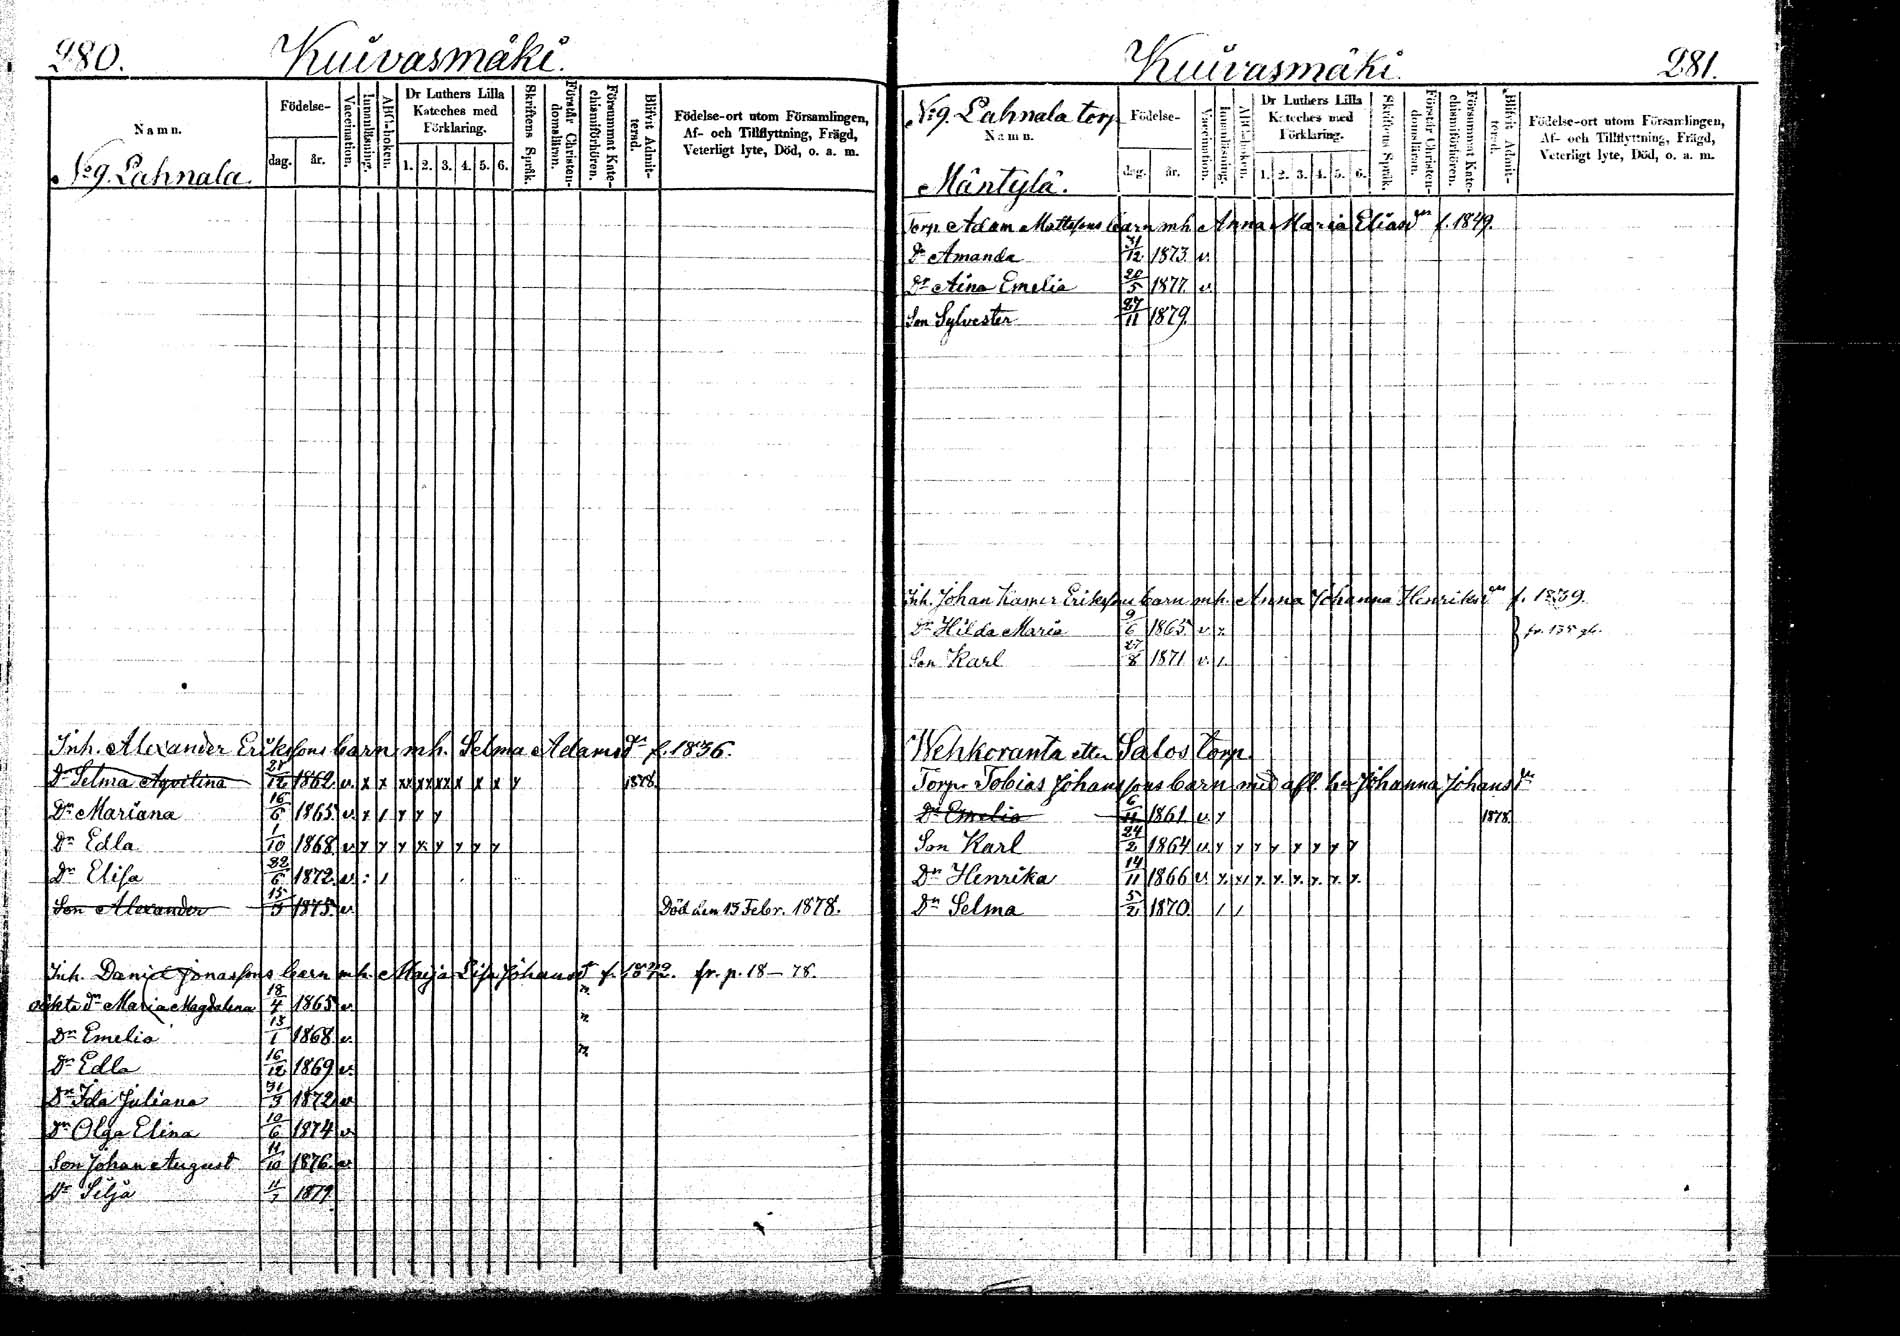 280. Kuivasmäki.
Namn.
Födelse-
dag. år.
Vaccination.
Innanläsning.
ABC-boken.
Dr Luthers Lilla Kateches med Förklaring.
1. 2. 3. 4. 5. 6.
Skriftens Språk.
Förstår Christendomsläran.
Försummat Katechismiförhören.
Blifvit Admitterad.
Födelse-ort utom Församlingen, Af- och Tillflyttning, Frägd, Veterligt lyte, Död, o. a. m.
No 9. Lahnala.
Inh. Alexander Erikssons barn mh. Selma Adamsdr f. 1836.
Dr Selma Aqvilina 28/12 1862. v. x x xx xx xx x x x y 1878.
Dr Mariana 16/6 1865. v. x / y y y
Dr Edla 1/10 1868. v. y y y x y y y y
Dr Elisa 22/6 1872. v. : /
Son Alexander 15/3 1875. v. Död den 15 Febr. 1878.
Inh. Daniel Jonassons barn mh. Maja Lisa Johansd f. fr. p. 18-78.
Dr Maria Magdalena 18/4 1865 v. n.
Dr Emelia 13/1 1868. v. n.
Dr Edla 16/12 1869 v. n.
Dr Ida Juliana 31/3 1872 v.
Dr Olga Elina 10/6 1874 v.
Son Johan August 11/10 1876. v.
Dr Silja 11/7 1879.
Kuivasmäki. 281.
No 9. Lahnala torp
Namn.
Födelse-
dag. år.
Vaccination.
Innanläsning.
ABC-boken.
Dr Luthers Lilla Kateches med Förklaring.
1. 2. 3. 4. 5. 6.
Skriftens Språk.
Förstår Christendomsläran.
Försummat Katechismiförhören.
Blifvit Admitterad.
Födelse-ort utom Församlingen, Af- och Tillflyttning, Frägd, Veterligt lyte, Död, o. a. m.
Mäntylä.
Torp. Adam Mattssons barn mh. Anna Maria Eliasdr f. 1849.
Dr Amanda 31/12 1873. v.
Dr Aina Emelia 20/5 1877. v.
Son Sylvester 27/11 1879.
Inh. Johan Erikssons barn mh. Anna Johanna Henriksdr f. 1839.
Dr Hilda Maria 9/6 1865. v. x. fr. 135 gb.
Son Karl 27/8 1871 v. /.
Wehkoranta eller Salos torp.
Torp. Tobias Johanssons barn med afl. hu Johanna Johansdr
Dr Emelia 6/11 1861 v. y 1878.
Son Karl 24/2 1864 v. y y y y y y y y
Dr Henrika 14/11 1866 v. x. x/ y. y. y. y. y. y.
Dr Selma 5/2 1870. / /